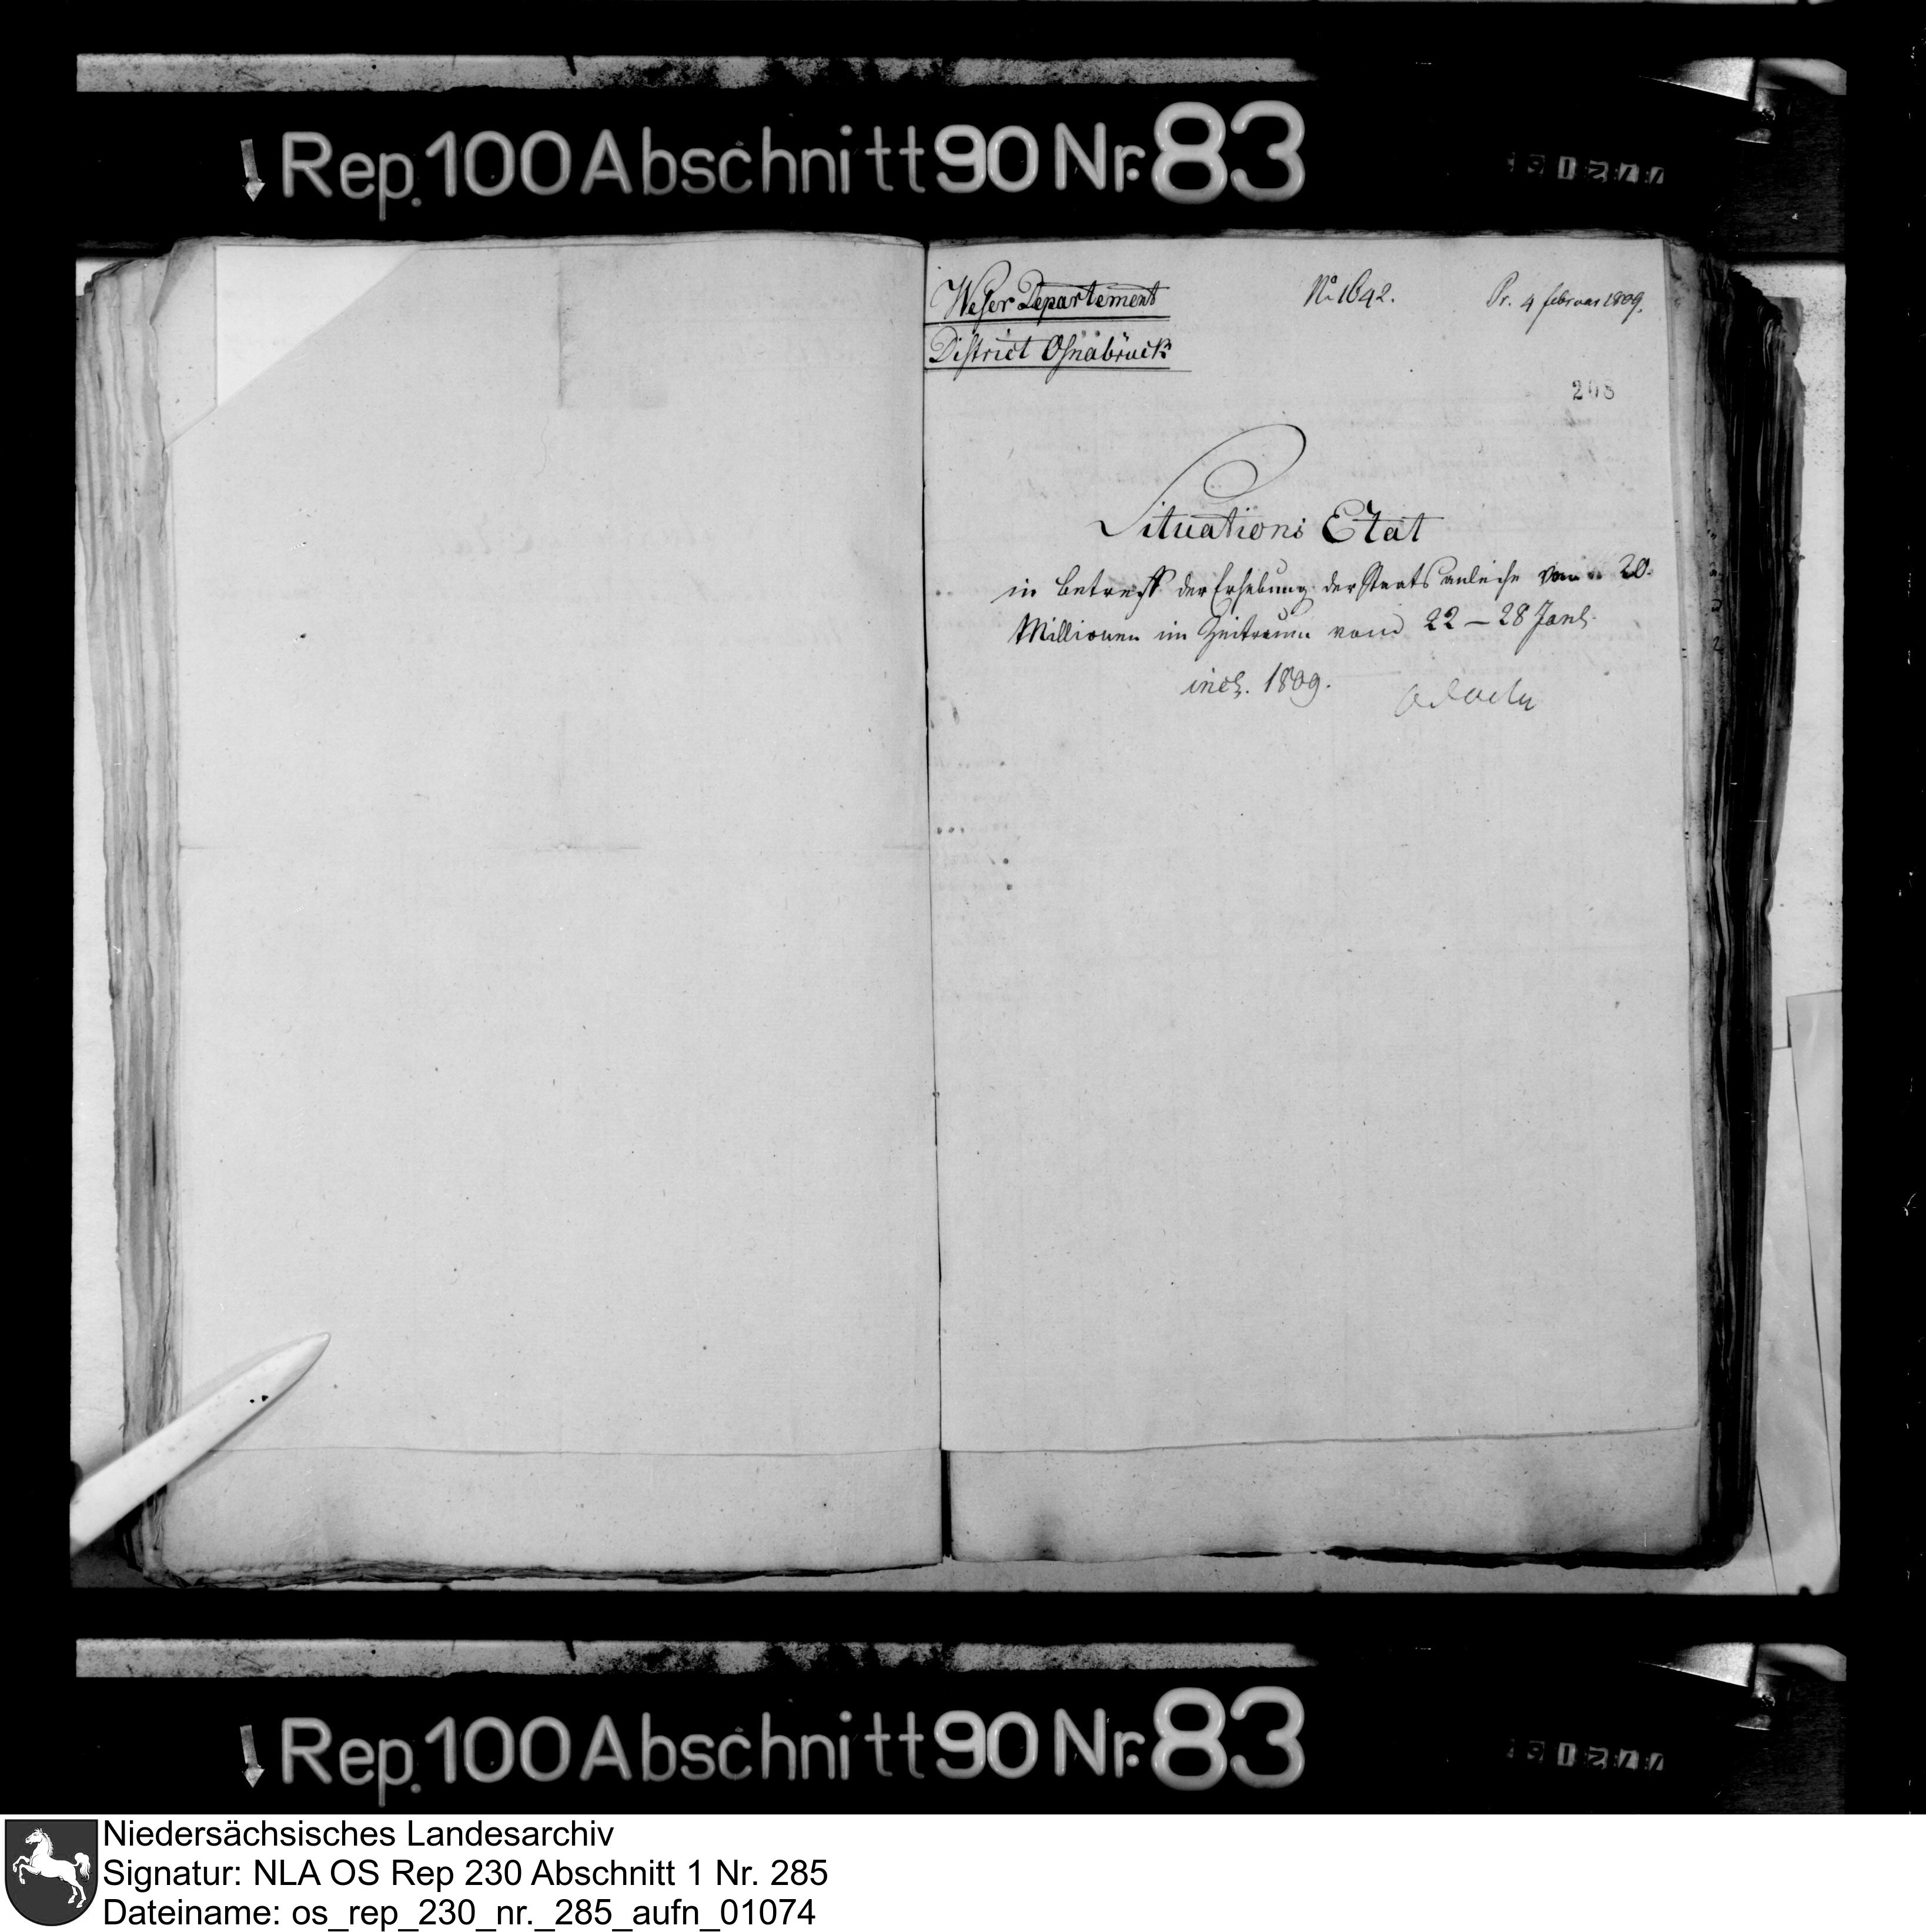 Rep. 100 Abschnitt 90 Nr. 83
Weser Departement
District Osnabrück
No 1642.
Pr. 4 februar 1809.
208
Situations Etat
in betreff der Erhebung der Staats anleihe von 20.
Millionen im Zeitraum vom 22 – 28 Janr.
incl. 1809.
Rep. 100 Abschnitt 90 Nr. 83
Niedersächsisches Landesarchiv
Signatur: NLA OS Rep 230 Abschnitt 1 Nr. 285
Dateiname: os_rep_230_nr._285_aufn_01074